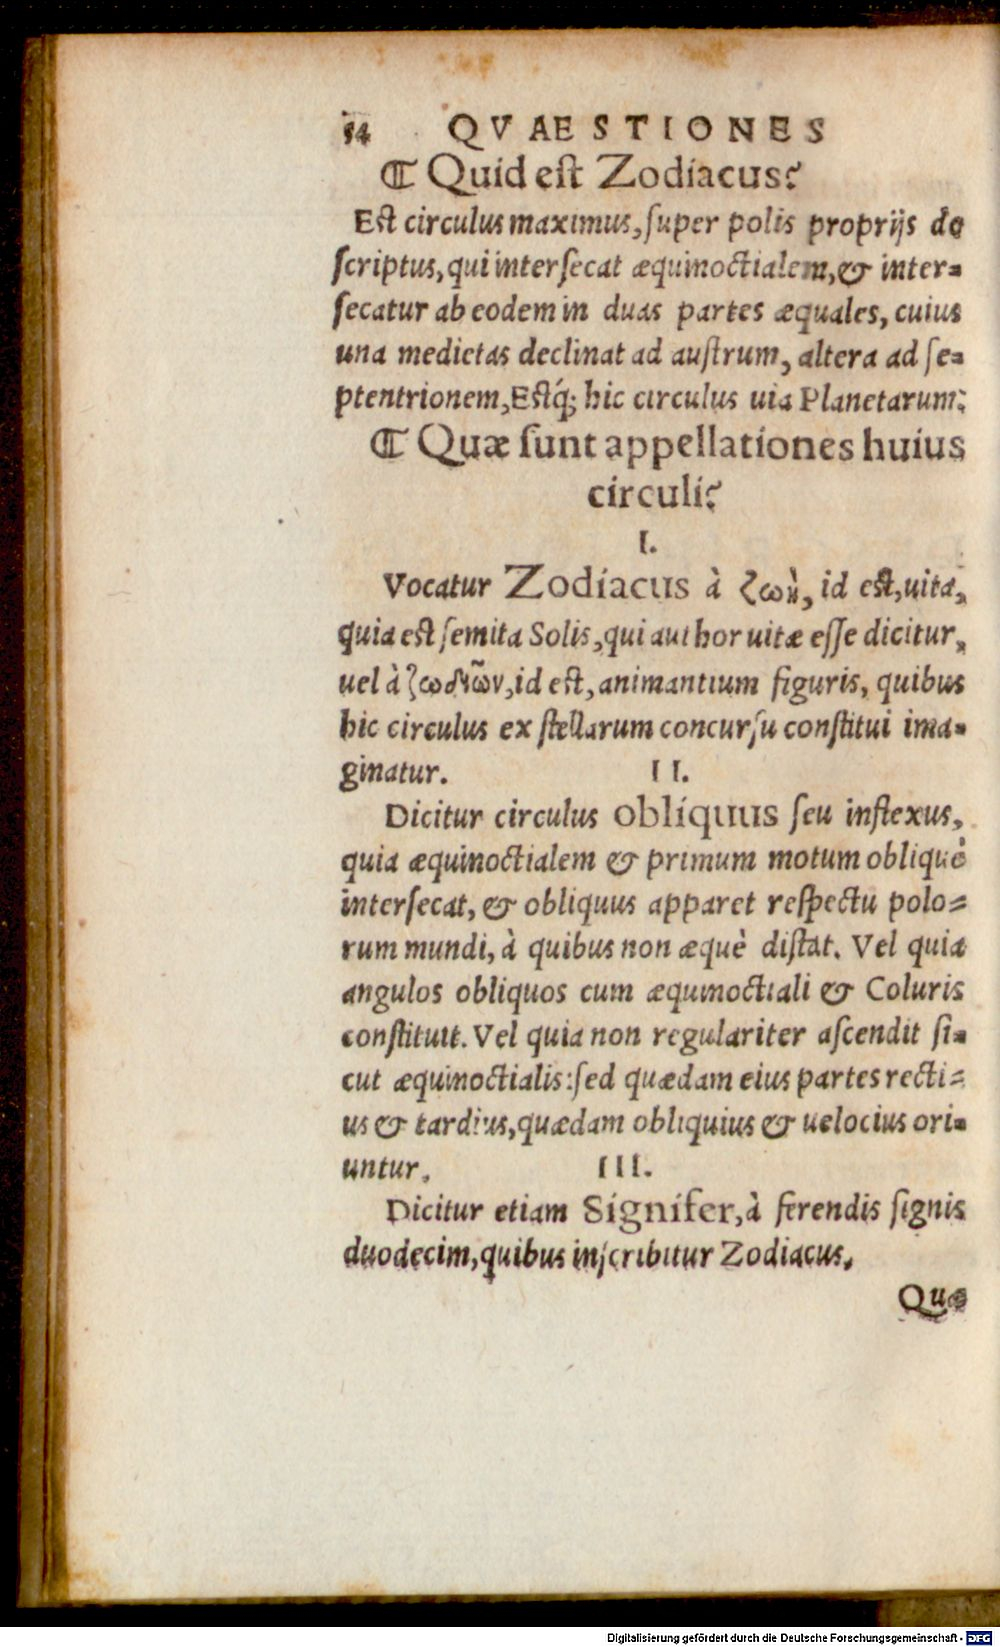 54 QVAESTIONES
⁋ Quid est Zodiacus?
Est circulus maximus, ſuper polis proprijs de
ſcriptus, qui interſecat æquinoctialem, & inter-
ſecatur ab eodem in duas partes æquales, cuius
una medietas declinat ad auſtrum, altera ad ſe-
ptentrionem, Estq́; hic circulus uia Planetarum.
⁋ Quæ ſunt appellationes huius
circuli?
I.
Vocatur Zodiacus à ζωὴ, id est, uita,
quia est ſemita Solis, qui author uitæ eſſe dicitur,
uel à ζωδιῶν, id est, animantium figuris, quibus
hic circulus ex ſtellarum concurſu conſtitui ima-
ginatur. II.
Dicitur circulus obliquus ſeu inflexus,
quia æquinoctialem & primum motum obliquè
interſecat, & obliquus apparet reſpectu polo-
rum mundi, à quibus non æquè diſtat. Vel quia
angulos obliquos cum æquinoctiali & Coluris
conſtituit. Vel quia non regulariter aſcendit ſi-
cut æquinoctialis: ſed quædam eius partes recti-
us & tardius, quædam obliquius & uelocius ori-
untur. III.
Dicitur etiam Signifer, à ferendis ſignis
duodecim, quibus inſcribitur Zodiacus.
Quæ
Digitalisierung gefördert durch die Deutsche Forschungsgemeinschaft - DFG